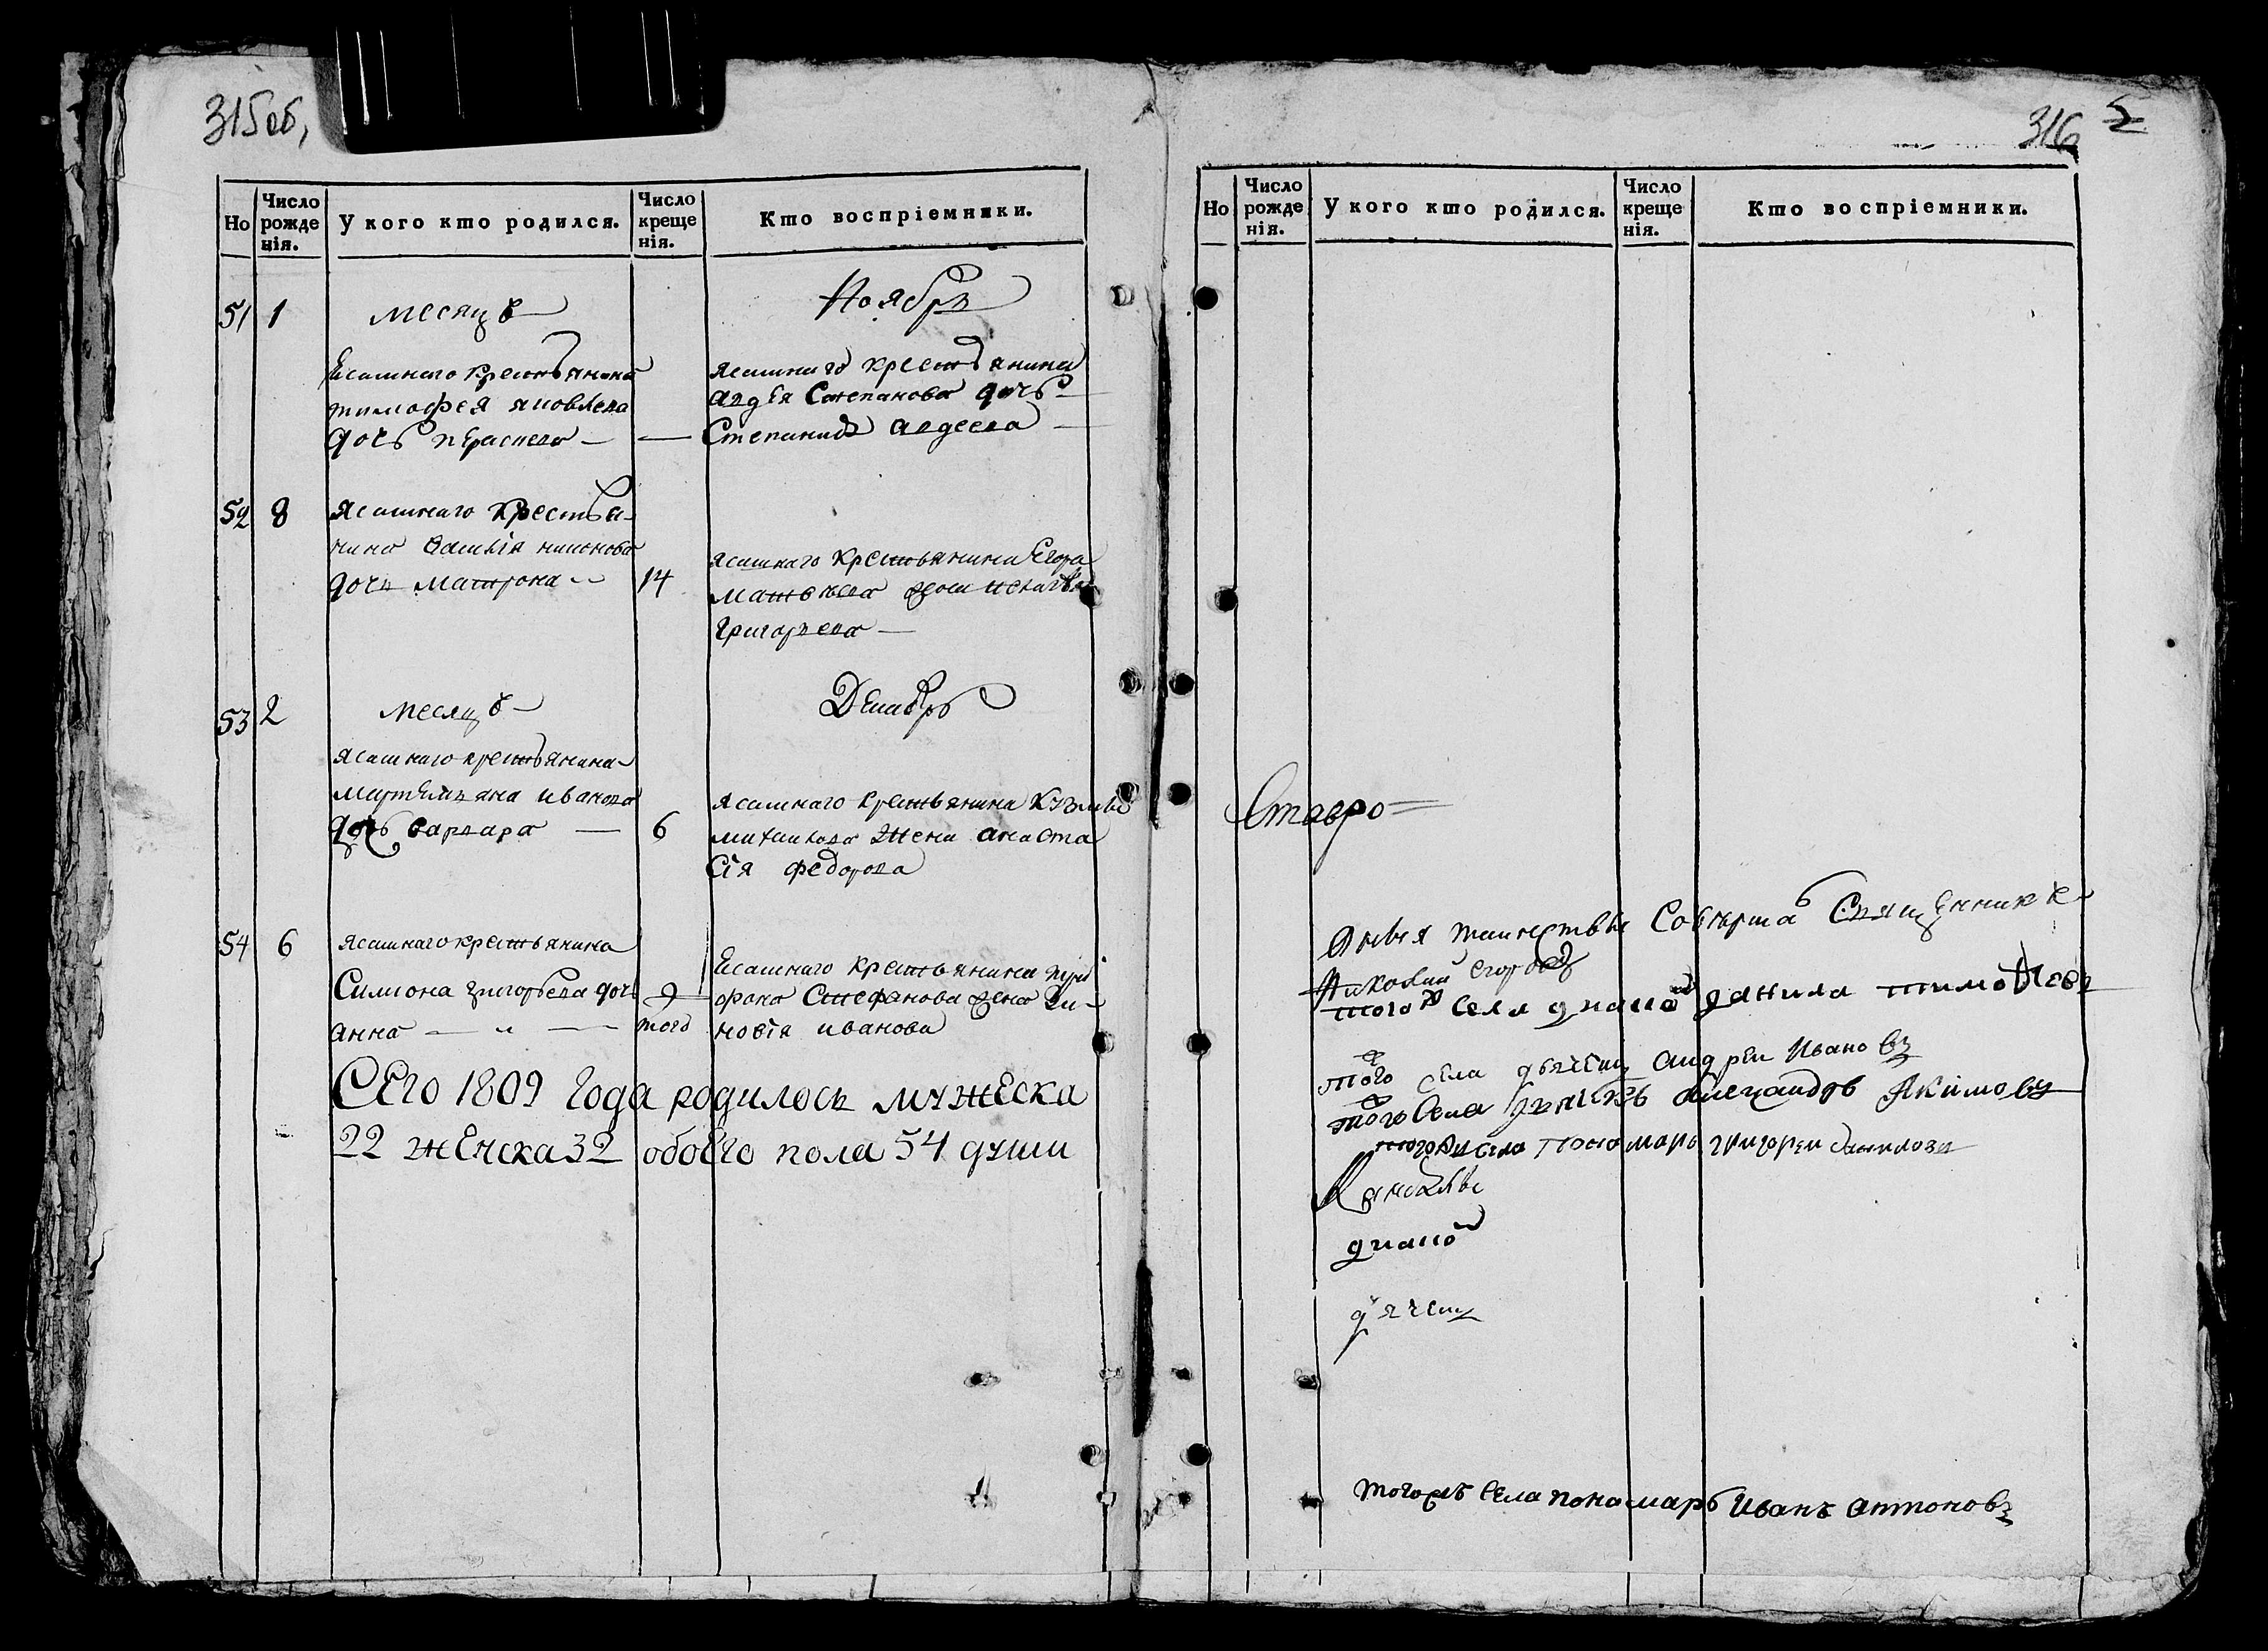 315 об,
Но
Число рожденія.
У кого кто родился.
Число крещенія.
Кто воспріемники.
51 1 месяцъ Ноябрь
Ясашнаго крестьянина
тимофея яковлева
дочь параскева —
ясашнаго крестьянина
авдея Степанова дочь
Степанида авдеева —
52 8 Ясашнаго крестья-
нина василія
дочь матрона — 14
ясашнаго крестьянина Егора
матвеева жена
григорьева —
53 2 месяцъ — Декабрь
ясашнаго крестьянина
мартемьяна иванова
дочь варвара — 6
ясашнаго крестьянина кузмы
михаилова жена анаста
сія федорова
54 6 ясашнаго крестьянина
Симиона григорьева дочь 9
анна — того
Ясашнаго крестьянина
Стефанова жена зи-
новія иванова
Сего 1809 года родилось мужеска
22 женска 32 обоего пола 54 души
316 5
Но
Число рожденія.
У кого кто родился.
Число крещенія.
Кто воспріемники.
Ставро=
таинствы Совершалъ Священникъ
Николай Егоровъ
тогожъ села диаконъ данила тимофеевъ
тогожъ села дьячекъ андреи Ивановъ
тогожъ села дьячекъ александръ Акимовъ
тогожъ села пономарь григореи даниловъ
диаконъ
дьячекъ
тогожъ села пономарь Иванъ антоновъ